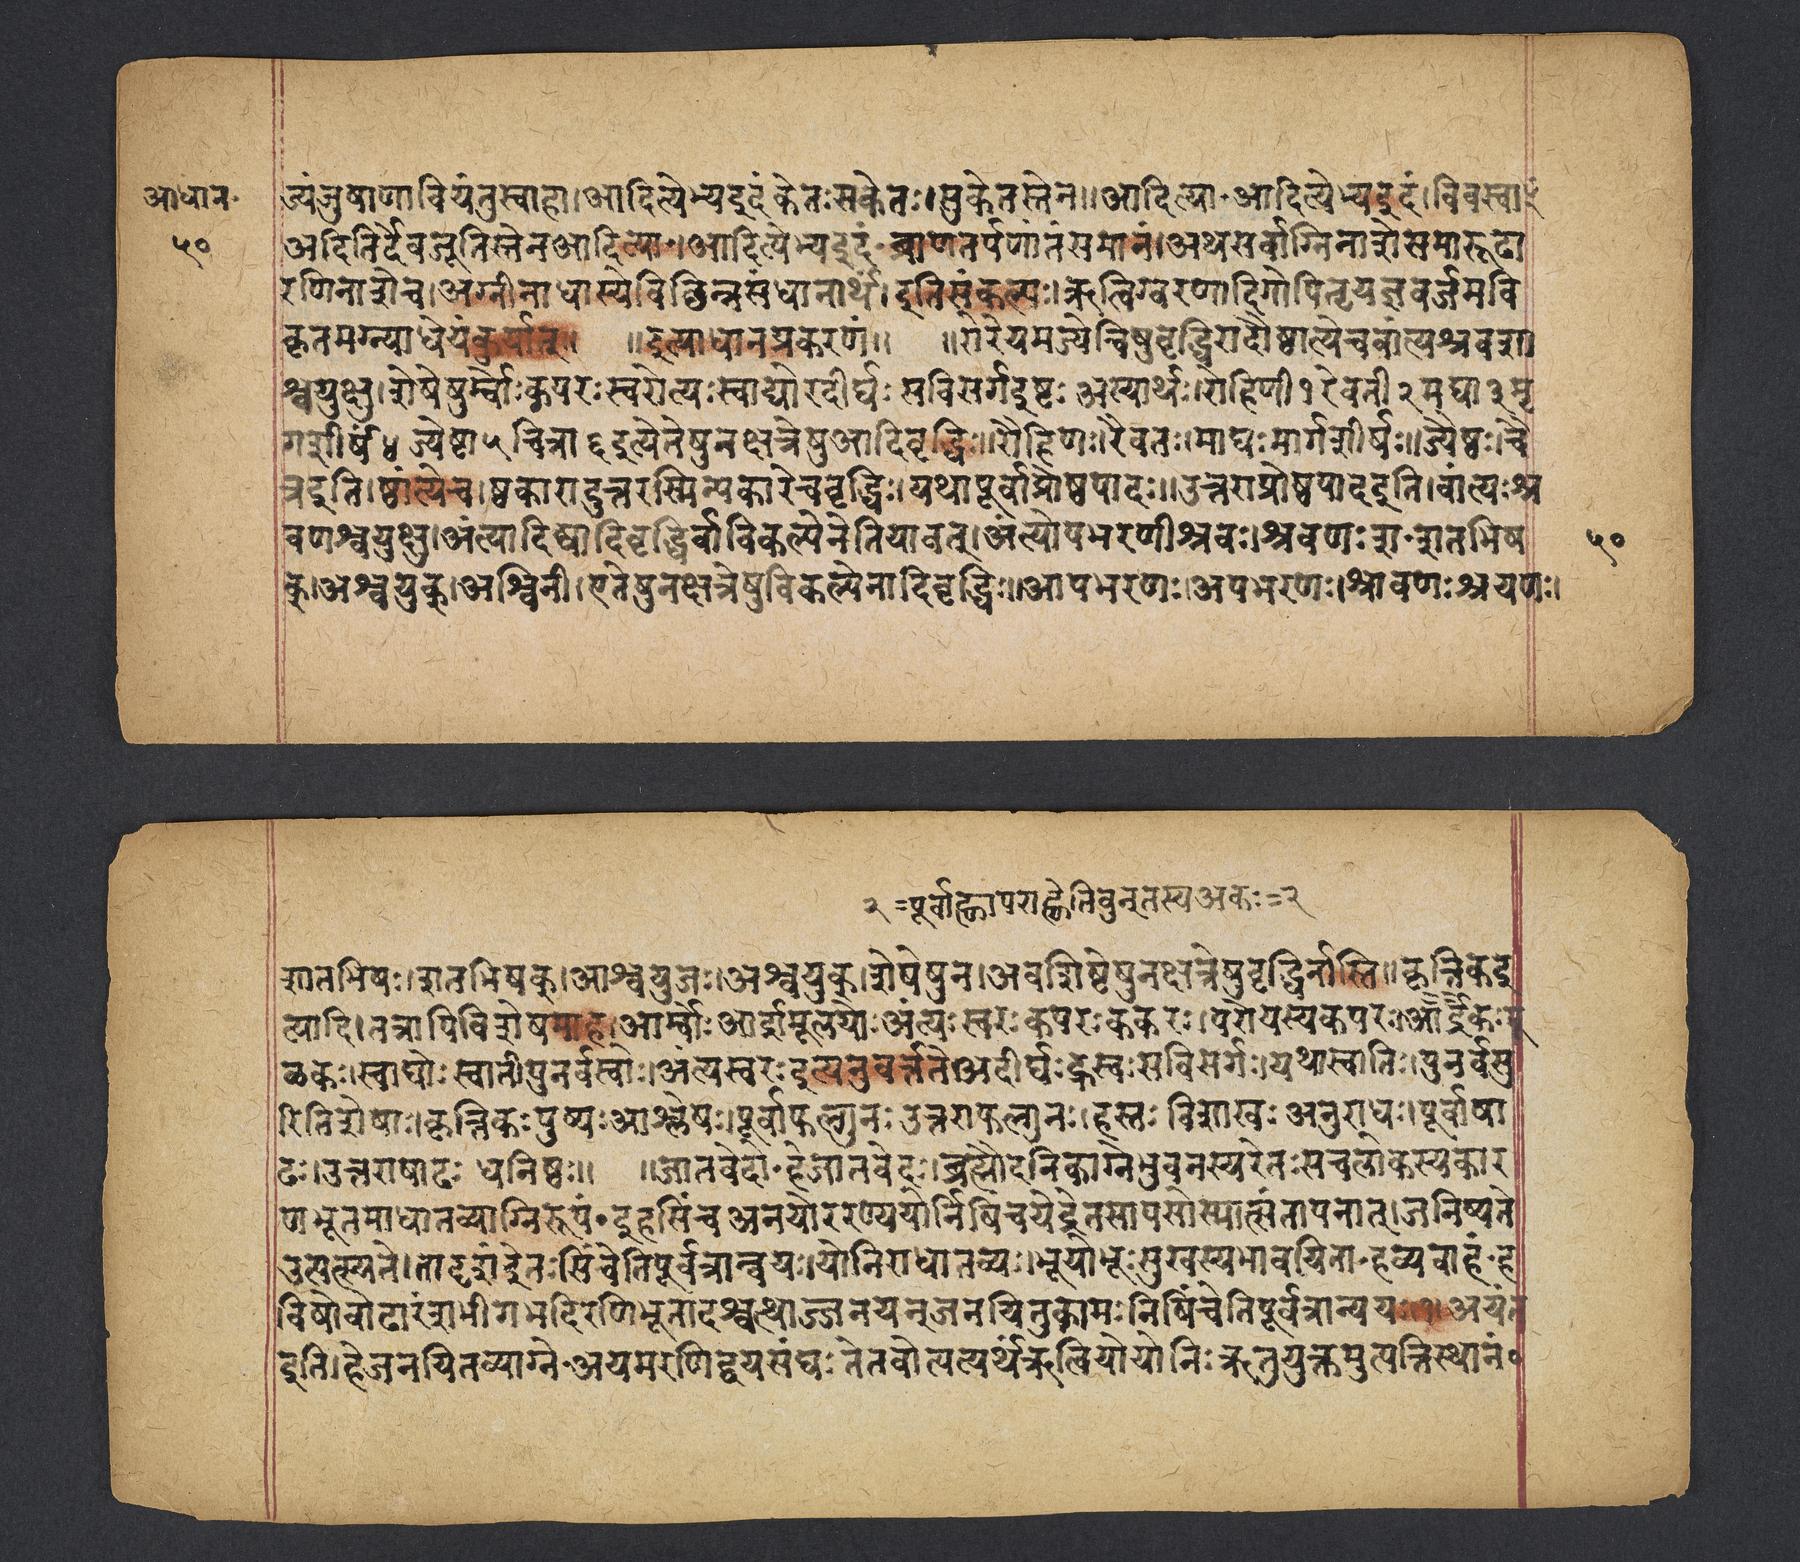 आधान॰
५०
ज्यंजुषाणावियंतुस्वाहा।आदित्येभ्यइदंकेतःसकेतः।सुकेतस्तेन॥आदित्या॰आदित्येभ्यइदं।विवस्वाꣳ
अदितिर्देवजूतिस्तेनआदित्या॰।आदित्येभ्यइदं॰ब्राणतर्पणांतंसमानं।अथसर्वाग्निनाशेसमारूढा
रणिनाशेच।अग्नीनाधास्येविछिन्नसंधानार्थं।इतिसंकल्पः।ऋत्विग्वरणादिगोपितृयज्ञवर्जमवि
कृतमग्न्याधेयंकुर्यात्॥ ॥इत्याधानप्रकरणं॥ ॥रोरेयमज्येन्चिषुवृद्धिरादौष्ठात्येचवांत्यश्रवशा
श्वयुक्षु।शेषेषुर्म्वोःक्पपरःस्वरोत्यःस्वाद्योरदीर्घः सविसर्गइष्टः अस्यार्थः।रोहिणी१रेवती२मघा३मृ
गशीर्षं४ज्येष्टा५चित्रा६इत्येतेषुनक्षत्रेषुआदिवृद्धिः॥रौहिणः।रैवतः।माघःमार्गशीर्षः॥ज्यैष्ठः।चै
त्रइति।ष्ठांत्येच।ष्ठकारादुत्तरस्मिन्पकारेचवृद्धिः।यथापूर्वाप्रौष्ठपादः॥उत्तराप्रौष्ठपादइति।वांत्यःश्र
वणश्वयुक्षु।अंत्यादिष्वादिवृद्धिर्वाविकल्पेनेतियावत्।अंत्योपभरणीश्रवः।श्रवणःश॰शतभिष
क्।अश्वयुक्।अश्विनी।एतेषुनक्षत्रेषुविकल्पेनादिवृद्धिः॥आपभरणः।अपभरणः।श्रावणःश्रवणः।
५०
२=पूर्वाह्णापराह्णेतिवुन्तस्यअकः=२
शातभिषः।शतभिषक्।आश्वयुजः।अश्वयुक्।शेषेषुन।अवशिष्टेषुनक्षत्रेषुवृद्धिर्नास्ति॥कृत्तिकइ
त्यादि।तत्रापिविशेषमाह।आर्म्वोःआर्द्रामूलयोःअंत्यःस्वरःकपरःककरः।परोयस्यकपरः।आर्द्रकःमू
ळकः।स्वाघोःस्वातीपुनर्वस्वोः।अंत्यस्वरःइत्यनुवर्त्तते।अदीर्घःह्रस्वःसविसर्गः।यथास्वातिः।पुनर्वसु
रितिशेषाः।कृत्तिकःपुष्यःआश्लेषः।पूर्वाफल्गुनःउत्तराफल्गुनः।हस्तः विशाखः अनुराधः।पूर्वाषा
ढः।उत्तराषाढः धनिष्ठः॥ ॥जातवेदो॰हेजातवेदः।ब्रह्मौदनिकाग्नेभुवनस्यरेतःसचलोकस्यकार
णभूतमाधातव्याग्निरूपं॰इहसिंचअनयोररण्ययोर्निषिंचयेद्रेतसापसोस्पात्संतापनात्।जनिष्यते
उत्पत्स्यते।तादृशंद्रेतःसिंचेतिपूर्वत्रान्वयः।योनिराधातव्यः।भूयोभूःसुखस्यभावयिता॰हव्यवाहं॰ह
विषोवोढारंशमीगर्भादरणिभूतादश्वत्थाज्जनयन्जनयितुकामःनिषिंचेतिपूर्वत्रान्वयः॥१॥अयंत
इति।हेजनयितव्याग्ने॰अयमरणिद्वयसंघःतेतवोत्पत्यर्थंऋत्वियोयोनिःऋतुयुक्तमुत्पत्तिस्थानं॰